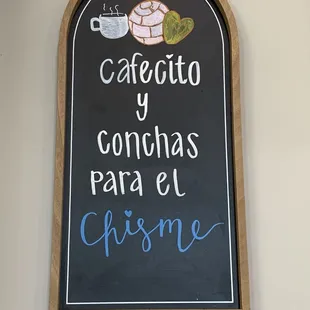 cafecito
y
conchas
para el
Chisme